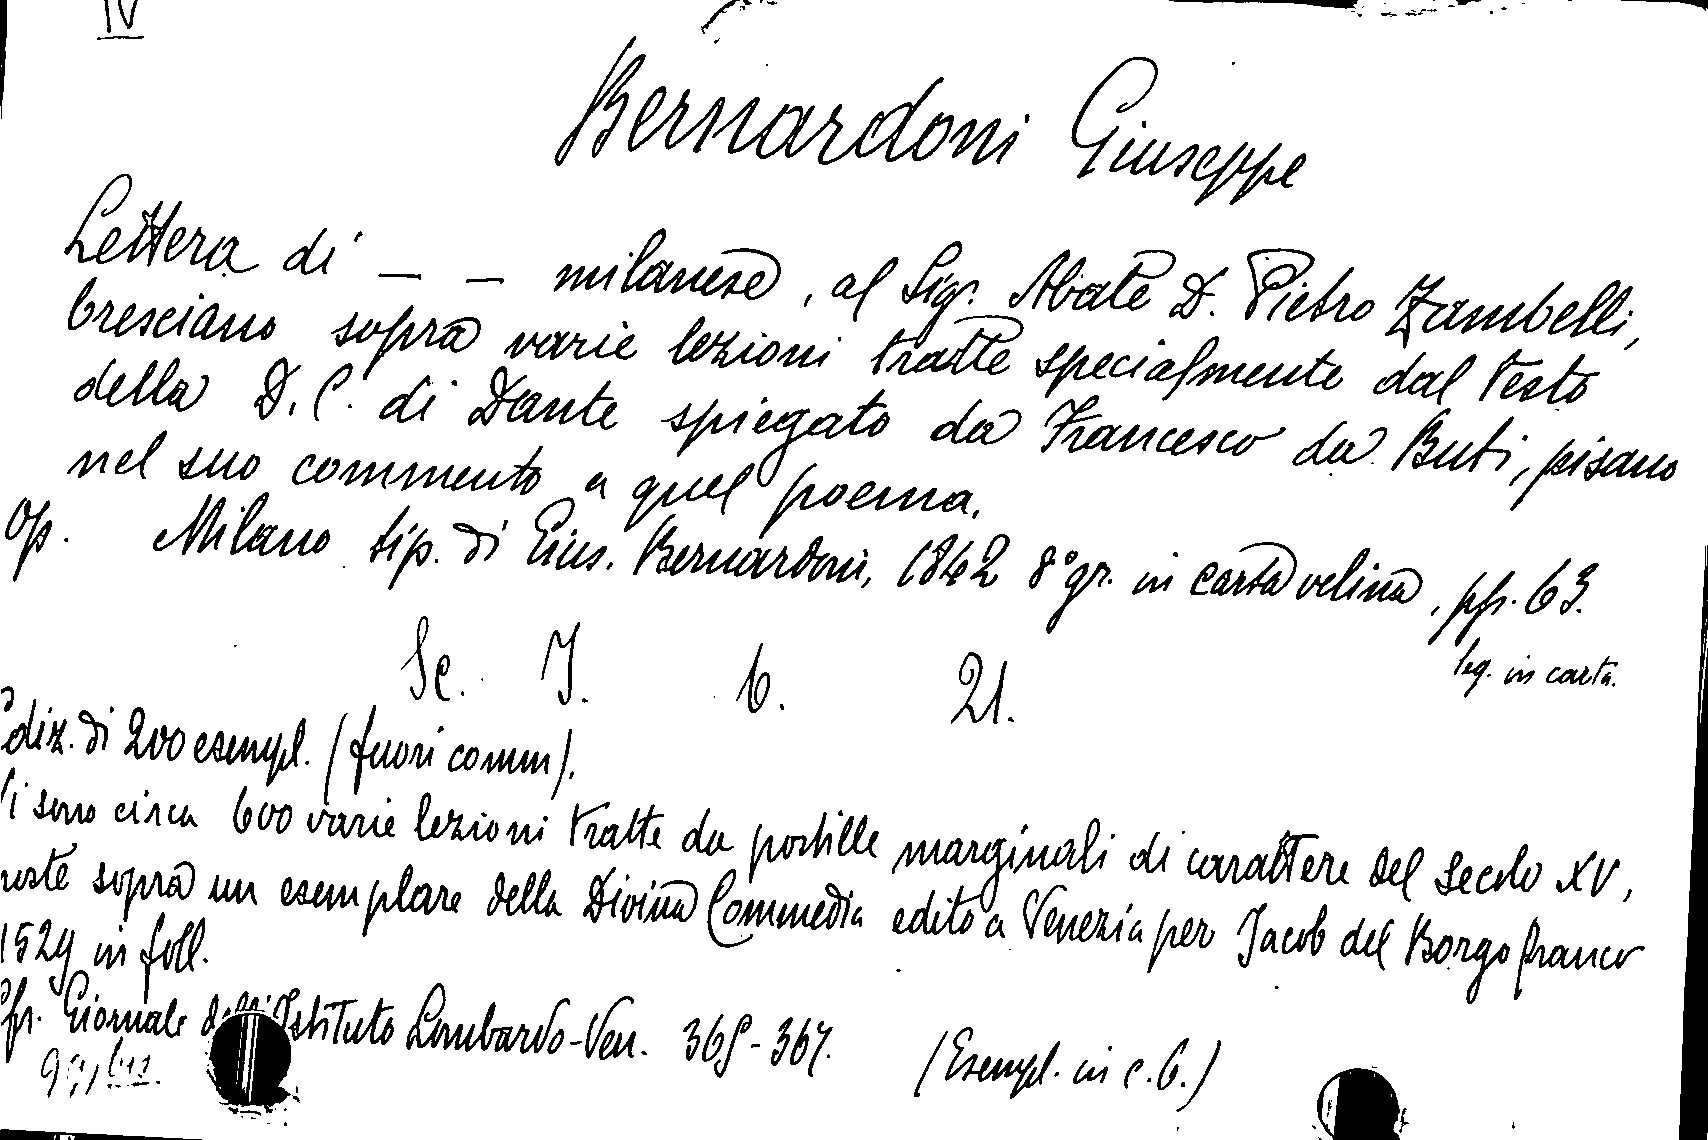 IV
Bernardoni Giuseppe
Lettera di _ _ milanese, al Sig. Abate D. Pietro Zambelli,
bresciano sopra varie lezioni tratte specialmente dal testo
della D. C. di Dante spiegato da Francesco da Buti, pisano
nel suo commento a quel poema.
Op. Milano tip. di Gius. Bernardoni, 1842 8° gr. in carta velina, pp. 63.
leg. in carta.
Sc. I. 6. 21.
Ediz. di 200 esempl. (fuori comm).
Vi sono circa 600 varie lezioni tratte da postille marginali di carattere del secolo XV,
poste sopra un esemplare della Divina Commedia edito a Venezia per Jacob del Borgofranco
1529 in foll.
Cfr. Giornale dell'Istituto Lombardo-Ven. 365-367.
(Esempl. in c. G.)